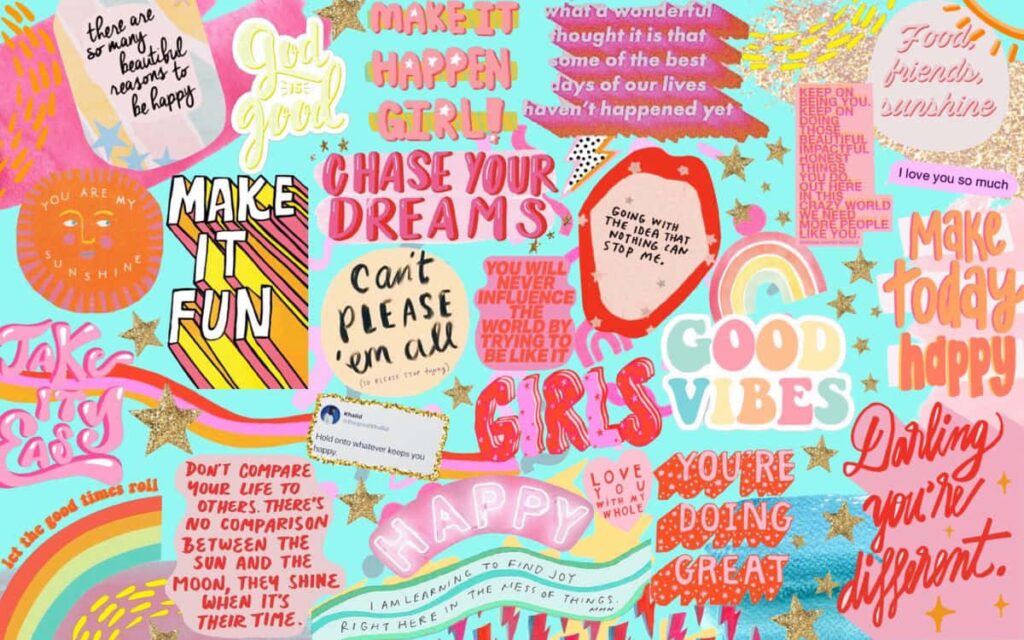 there are
so many
beautiful
reasons to
be happy
god
is
good
MAKE IT
HAPPEN
GIRL!
what a wonderful
thought it is that
some of the best
days of our lives
haven't happened yet
Food,
friends,
sunshine
KEEP ON
BEING YOU.
KEEP ON
DOING
THOSE
BEAUTIFUL
IMPACTFUL
HONEST
THINGS
YOU DO.
OUT HERE
IN THIS
CRAZY WORLD
WE NEED
MORE PEOPLE
LIKE YOU.
I love you so much
YOU ARE MY
SUNSHINE
MAKE
IT
FUN
CHASE YOUR
DREAMS
GOING WITH
THE IDEA THAT
NOTHING CAN
STOP ME.
make
today
happy
can't
PLEASE
'em all
(SO PLEASE STOP trying)
YOU WILL
NEVER
INFLUENCE
THE
WORLD BY
TRYING TO
BE LIKE IT
GOOD
VIBES
TAKE
IT
EASY
GIRLS
Khalid
Hold onto whatever keeps you
happy.
Darling
you're
different.
let the good times roll
DON'T COMPARE
YOUR LIFE TO
OTHERS. THERE'S
NO COMPARISON
BETWEEN THE
SUN AND THE
MOON, THEY SHINE
WHEN IT'S
THEIR TIME.
HAPPY
LOVE
YOU
WITH MY
WHOLE
YOU'RE
DOING
GREAT
I AM LEARNING TO FIND JOY
RIGHT HERE IN THE MESS OF THINGS.